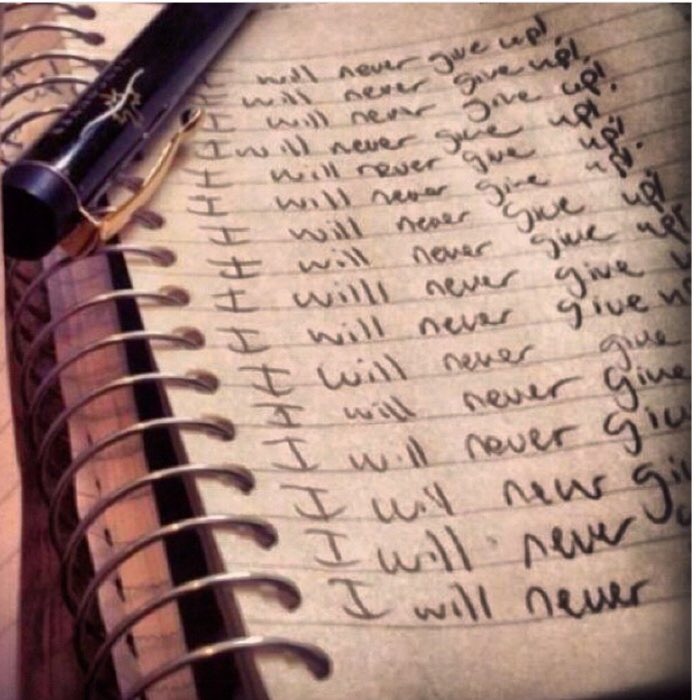 I will never give up!
I will never give up!
I will never give up!
I will never give up!
I will never give up!
I will never give up!
I will never give up!
I will never give up!
I willl never give
I will never give up
I will never give
I will never give
I will never
I will never
I will never
I will never